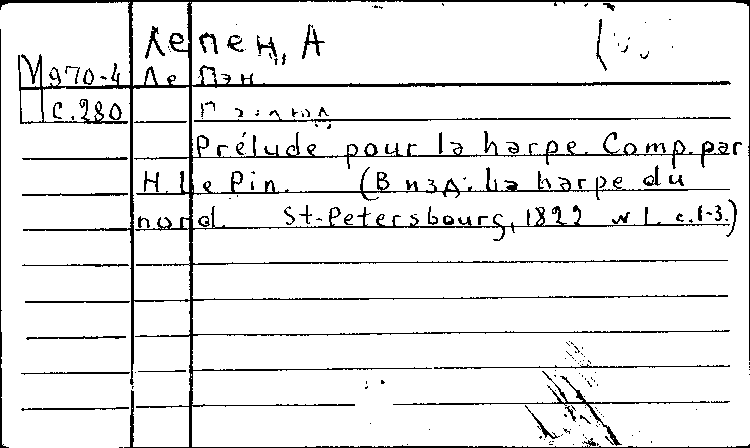 Лепен, А
М970-4 Ле Пэн
с.280
Prélude pour la harpe. Comp. par
H. Le Pin. (В изд: La harpe du
nord. St-Petersbourg, 1822 N 1. с.1-3.)